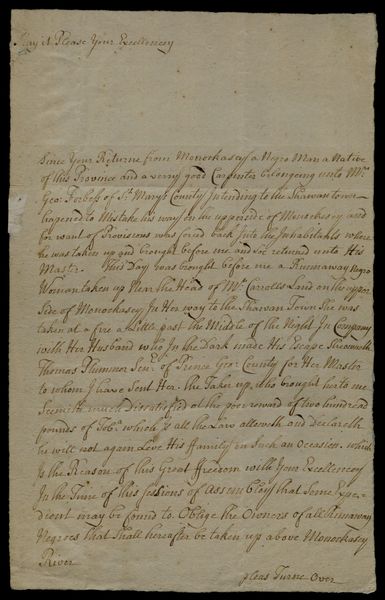 May it Please Your Excellency
Since Your Returne from Monockasey a Negro Man a Native
of this Province and a verry good Carpenter belonging unto Mr.
Geo: Forbess of St. Marys County Intending to the Shawan town
hapened to Mistake his way on the upper side of Monockesey and
for want of Provisions was forced back Into the Inhabitants where
he was taken up and brought before me and is returned unto His
Master. This Day was brought before me a Runaway Negro
Woman taken up Near the Head of Mr. Carrolls Land on the upper
Side of Monockasey In Her way to the Shawan Town She was
taken at a fire a Little past the Middle of the Night In Company
with Her Husband who In the Dark made His Escape
Thomas Plummor Senr. of Prince Geo: County for Her Master
to whom I have Sent Her. the Taker up who brought her to me
Seemeth much dissatisfied at the poor reward of two hundred
pounds of Tobo. which is all the Law alloweth and Declareth
he will not again Leve His ffamily on Such an Occasion. which
Is the Reason of this Great ffreedom with Your Excellency
In the Time of this Sessions of Assembly that Some Expe-
dient may be found to Oblige the Owners of all Runaway
Negroes that Shall hereafter be taken up above Monockasey
River
pleas Turne Over